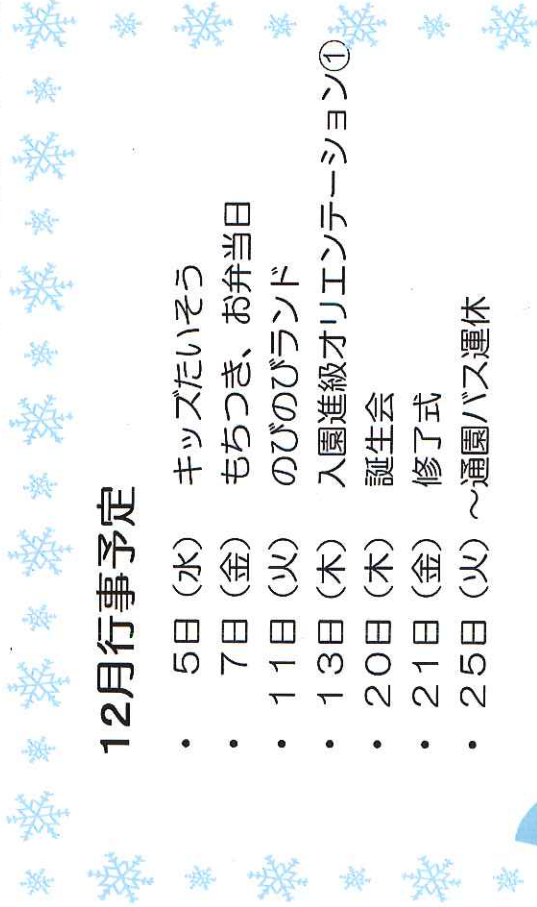 12月行事予定
・ 5日（水） キッズたいそう
・ 7日（金） もちつき、お弁当日
・１１日（火） のびのびランド
・１３日（木） 入園進級オリエンテーション①
・２０日（木） 誕生会
・２１日（金） 修了式
・２５日（火）～通園バス運休